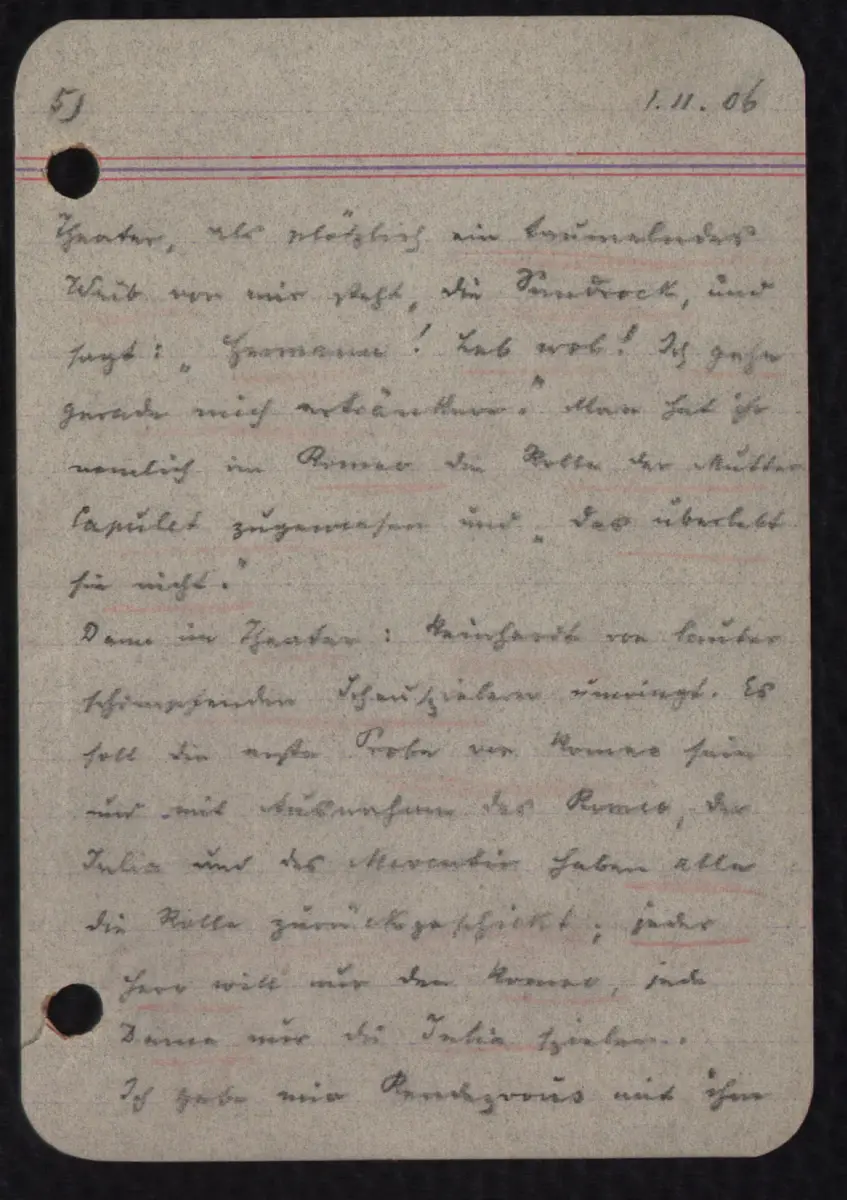 5)
1.11.06
Theater, als plötzlich ein taumelndes
Weib vor mir steht, die Sandrock, und
sagt: „Hermann! Leb wol! Ich gehe
gerade mich ertränken." Man hat ihr
nemlich im Romeo die Rolle der Mutter
Capulet zugewiesen und „das überlebt
sie nicht."
Dann im Theater: Reinhardt von lauter
schimpfenden Schauspielern umringt. Es
soll die erste Probe von Romeo sein
und mit Ausnahme des Romeo, der
Julia und des Mercutio haben alle
die Rolle zurückgeschickt; jeder
Herr will nur den Romeo, jede
Dame nur die Julia spielen.
Ich gebe mir Rendezvous mit ihm